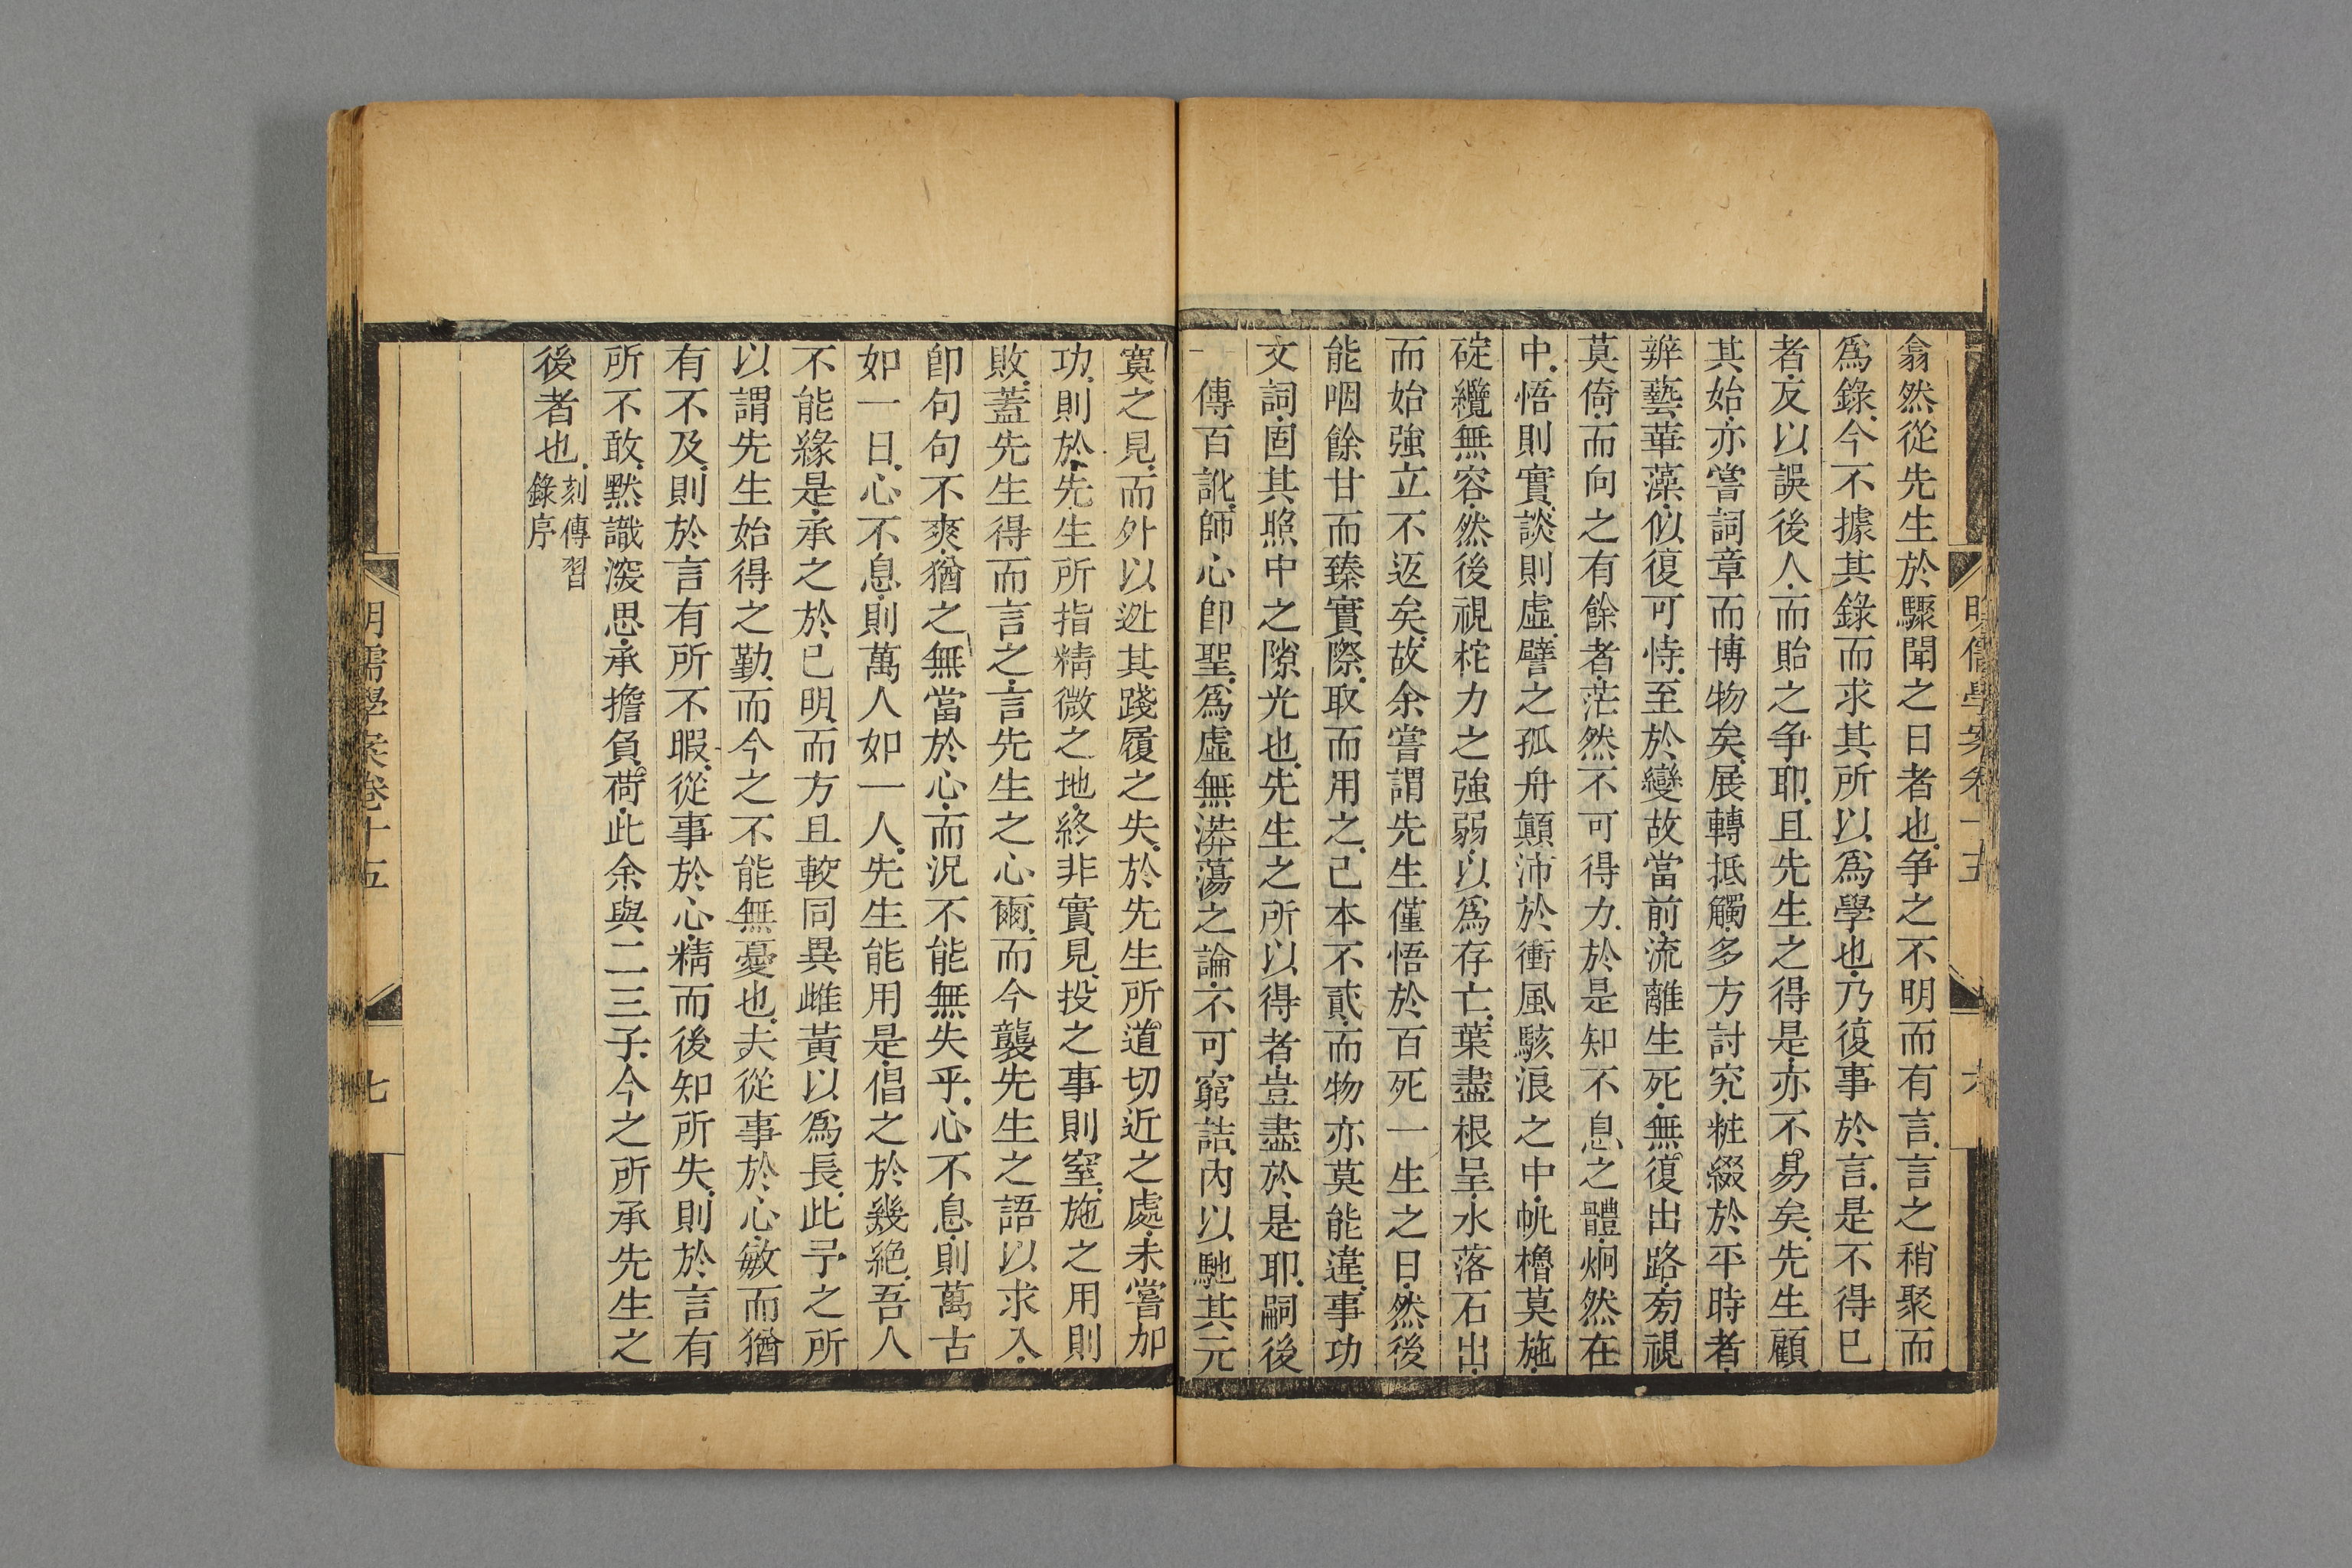 翕然從先生於驟聞之日者也爭之不明而有言言之稍聚而
爲錄今不據其錄而求其所以爲學也乃復事於言是不得已
者反以誤後人而貽之爭耶且先生之得是亦不易矣先生顧
其始亦嘗詞章而博物矣展轉抵觸多方討究粧綴於平時者
辨藝華藻似復可恃至於變故當前流離生死無復出路旁視
莫倚而向之有餘者茫然不可得力於是知不息之體炯然在
中悟則實談則虛譬之孤舟顚沛於衝風駭浪之中帆櫓莫施
碇纜無容然後視柁力之強弱以爲存亡葉盡根呈水落石出
而始強立不返矣故余嘗謂先生僅悟於百死一生之日然後
能咽餘甘而臻實際取而用之己本不貳而物亦莫能違事功
文詞固其照中之隙光也先生之所以得者豈盡於是耶嗣後
一傳百訛師心卽聖爲虛無漭蕩之論不可窮詰內以馳其元
明儒學案卷十五 六
寞之見而外以逃其踐履之失於先生所道切近之處未嘗加
功則於先生所指精微之地終非實見投之事則窒施之用則
敗蓋先生得而言之言先生之心爾而今襲先生之語以求入
卽句句不爽猶之無當於心而況不能無失乎心不息則萬古
如一日心不息則萬人如一人先生能用是倡之於幾絕吾人
不能緣是承之於已明而方且較同異雌黃以爲長此予之所
以謂先生始得之勤而今之不能無憂也夫從事於心敏而猶
有不及則於言有所不暇從事於心精而後知所失則於言有
所不敢默識深思承擔負荷此余與二三子今之所承先生之
後者也刻傳習
錄序
明儒學案卷十五 七